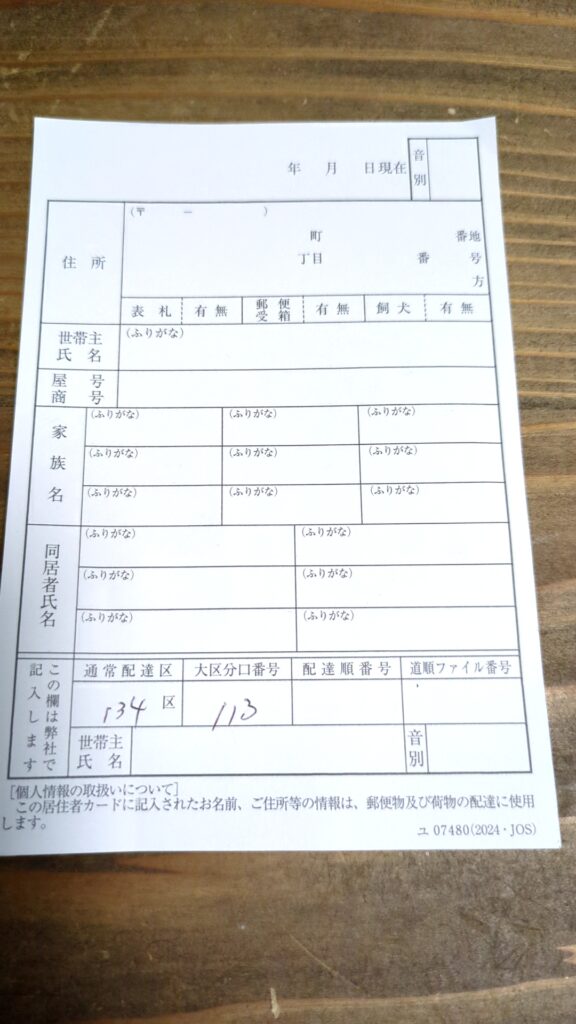 年 月 日現在 音別
住所 (〒 － )
町 番地
丁目 番 号
方
表札 有無 郵便受箱 有無 飼犬 有無
世帯主氏名 (ふりがな)
屋号
商号
家族名 (ふりがな) (ふりがな) (ふりがな)
(ふりがな) (ふりがな) (ふりがな)
(ふりがな) (ふりがな) (ふりがな)
同居者氏名 (ふりがな) (ふりがな)
(ふりがな) (ふりがな)
(ふりがな) (ふりがな)
この欄は弊社で記入します
通常配達区 大区分口番号 配達順番号 道順ファイル番号
134 区 113
世帯主氏名 音別
[個人情報の取扱いについて]
この居住者カードに記入されたお名前、ご住所等の情報は、郵便物及び荷物の配達に使用
します。
ユ 07480(2024・JOS)